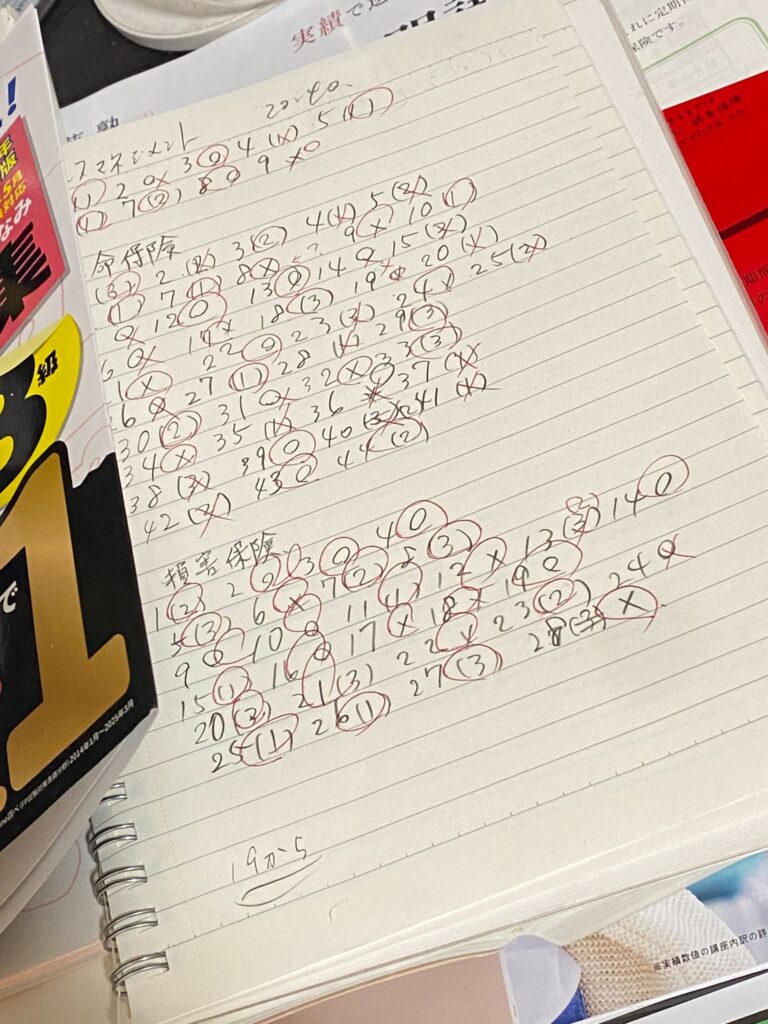 実績で選
れに定期保
保険です。
スマネジメント 20-40
(1) 2 o 3 O 4 (1) 5 (1)
(1) 7 (2) 8 o 9 x o
命保険
(3) 2 (2) 3 (2) 4 (1) 5 (2)
(1) 7 (1) 8 x 9 x 10 (1)
o 12 O 13 O 14 o 15 (2)
6 o 17 x 18 (3) 19 x 20 (1)
1 x 22 O 23 (3) 24 x 25 (2)
26 o 27 (1) 28 (1) 29 (3)
30 (2) 31 o 32 x 33 (3)
34 x 35 (1) 36 x 37 (1)
38 (3) 39 O 40 (3) 41 (1)
42 (2) 43 O 44 (2)
損害保険
1 (2) 2 O 3 O 4 O
5 (3) 6 x 7 (2) 8 (3)
9 o 10 o 11 (1) 12 x 13 (3) 14 O
15 (1) 16 o 17 x 18 x 19 O
20 (2) 21 (3) 22 x 23 (2) 24 o
25 (1) 26 (1) 27 (3) 28 (3) x
19から
版
5月
対応
なみ
級
3
で
1
2014年1月～2025年3月
※実績数値の講座内訳の詳